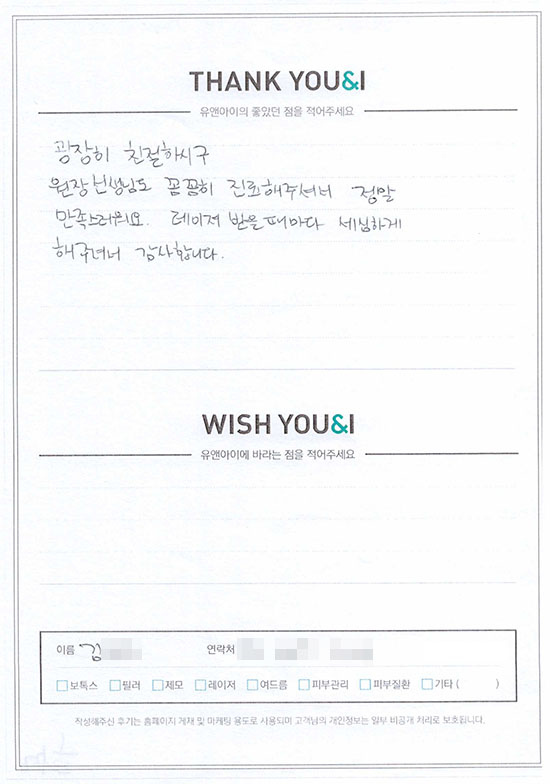 THANK YOU&I
유앤아이의 좋았던 점을 적어주세요
굉장히 친절하시구
원장선생님도 꼼꼼히 진료해주셔서 정말
만족스러워요. 레이저 받을때마다 세심하게
해주셔서 감사합니다.
WISH YOU&I
유앤아이에 바라는 점을 적어주세요
이름 김 연락처
보톡스 필러 제모 레이저 여드름 피부관리 피부질환 기타 ( )
작성해주신 후기는 홈페이지 게재 및 마케팅 용도로 사용되며 고객님의 개인정보는 일부 비공개 처리로 보호됩니다.